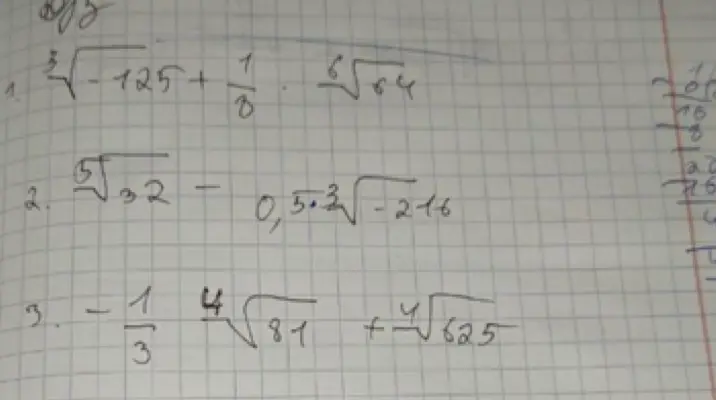 1. ∛-125 + 1/8 · ⁶√64
2. ⁵√32 - 0,5·∛-216
3. -1/3 ⁴√81 + ⁴√625